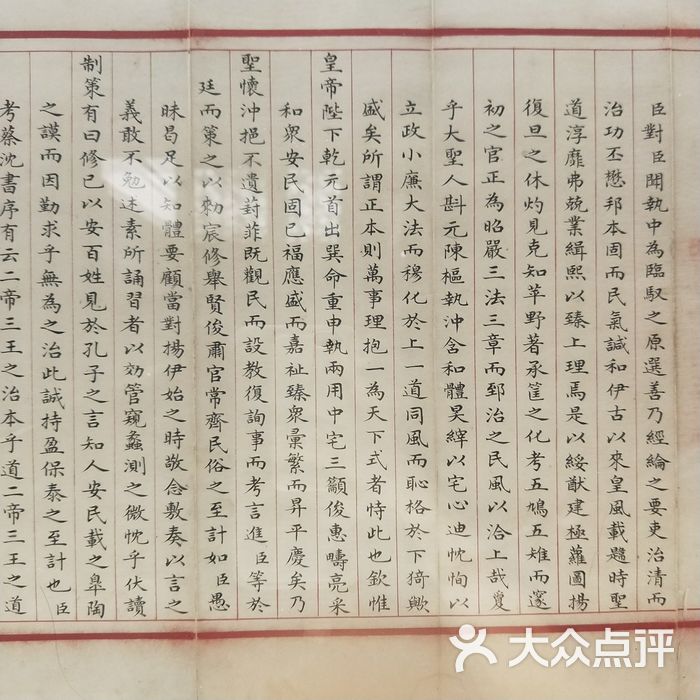 臣對臣聞執中為臨馭之原選善乃經綸之要吏治清而
治功丕懋邦本固而民氣諴和伊古以來皇風載題時聖
道淳靡弗兢業緝熙以臻上理焉是以綏猷建極蘿圖揚
復旦之休灼見克知苹野著承筐之化考五鳩五雉而邃
初之官正為昭嚴三法三章而郅治之民風以洽上哉敻
乎大聖人斟元陳樞執沖含和體昊縡以宅心迪忱恂以
立政小廉大法而穆化於上一道同風而恥格於下猗歟
盛矣所謂正本則萬事理抱一為天下式者恃此也欽惟
皇帝陛下乾元首出巽命重申執兩用中宅三籲俊惠疇亮采
和衆安民固已福應盛而嘉祉臻衆彙繁而昇平慶矣乃
聖懷沖挹不遺葑菲既觀民而設教復詢事而考言進臣等於
廷而策之以勑宸修舉賢俊肅官常齊民俗之至計如臣愚
昧曷足以知體要顧當對揚伊始之時敬念敷奏以言之
義敢不勉述素所誦習者以効管窺蠡測之微忱乎伏讀
制策有曰修己以安百姓見於孔子之言知人安民載之皋陶
之謨而因勤求乎無為之治此誠持盈保泰之至計也臣
考蔡沈書序有云二帝三王之治本乎道二帝三王之道
大众点评